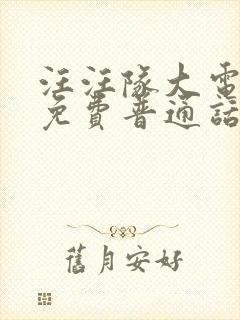 汪汪隊大電
免費普通話
舊月安好